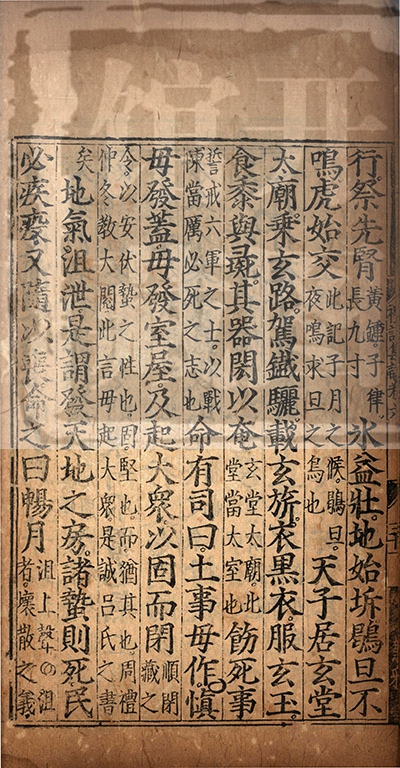 行祭先腎黃鍾子律長九寸氷益壯地始坼鶡旦不
鳴虎始交此記子月之候鶡旦夜鳴求旦之鳥也天子居玄堂
太廟乘玄路駕鐵驪載玄旂衣黑衣服玄玉
食黍與彘其器閎以奄玄堂太廟北堂當太室也飭死事
誓戒六軍之士以戰陳當厲必死之志也命有司曰土事毋作慎
毋發蓋毋發室屋及起大衆以固而閉順閉藏之
令以安伏蟄之性也固堅也而猶其也周禮仲冬教大閱此言毋起大衆是誠呂氏之書
矣地氣沮泄是謂發天地之房諸蟄則死民
必疾疫又隨以喪命之曰暢月沮上聲○沮者壞散之義